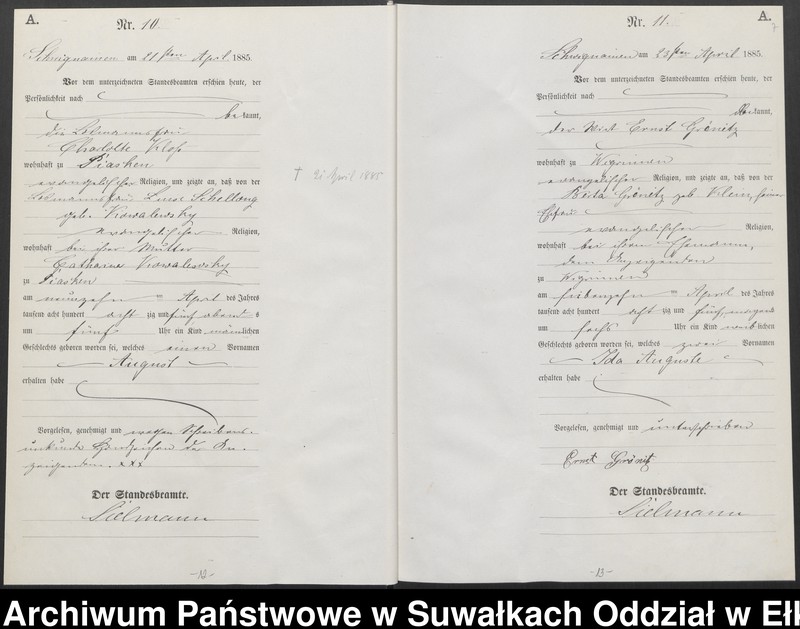 A.
Nr. 10.
am 21sten April 1885.
Vor dem unterzeichneten Standesbeamten erschien heute, der
Persönlichkeit nach
bekannt,
die Losmannsfrau
Charlotte
wohnhaft zu Piasken
evangelischer Religion, und zeigte an, daß von der
Losmannsfrau Luise Schellong
geb. Kowalewsky
evangelischer Religion,
wohnhaft bei ihrer Mutter
Catharina Kowalewsky
zu Piasken
am neunzehn April des Jahres
tausend acht hundert acht zig und fünf abends
um fünf Uhr ein Kind männlichen
Geschlechts geboren worden sei, welches einen Vornamen
August
erhalten habe
Vorgelesen, genehmigt und wegen Schreibens-
unkunde Handzeichen der An-
zeigenden. xxx
Der Standesbeamte.
Sielmann
-12-
† April 1885
A.
Nr. 11.
am 23sten April 1885.
Vor dem unterzeichneten Standesbeamten erschien heute, der
Persönlichkeit nach
bekannt,
der Wirt Ernst Grönitz
wohnhaft zu
evangelischer Religion, und zeigte an, daß von der
Grönitz geb Klein, seiner
Ehefrau
evangelischer Religion,
wohnhaft bei ihrem Ehemanne,
dem Anzeigenden
zu
am siebenzehn April des Jahres
tausend acht hundert acht zig und fünf, morgens
um sechs Uhr ein Kind weiblichen
Geschlechts geboren worden sei, welches zwei Vornamen
Ida Auguste
erhalten habe
Vorgelesen, genehmigt und unterschrieben
Ernst Grönitz
Der Standesbeamte.
Sielmann
-13-
Archiwum Państwowe w Suwałkach Oddział w Ełk